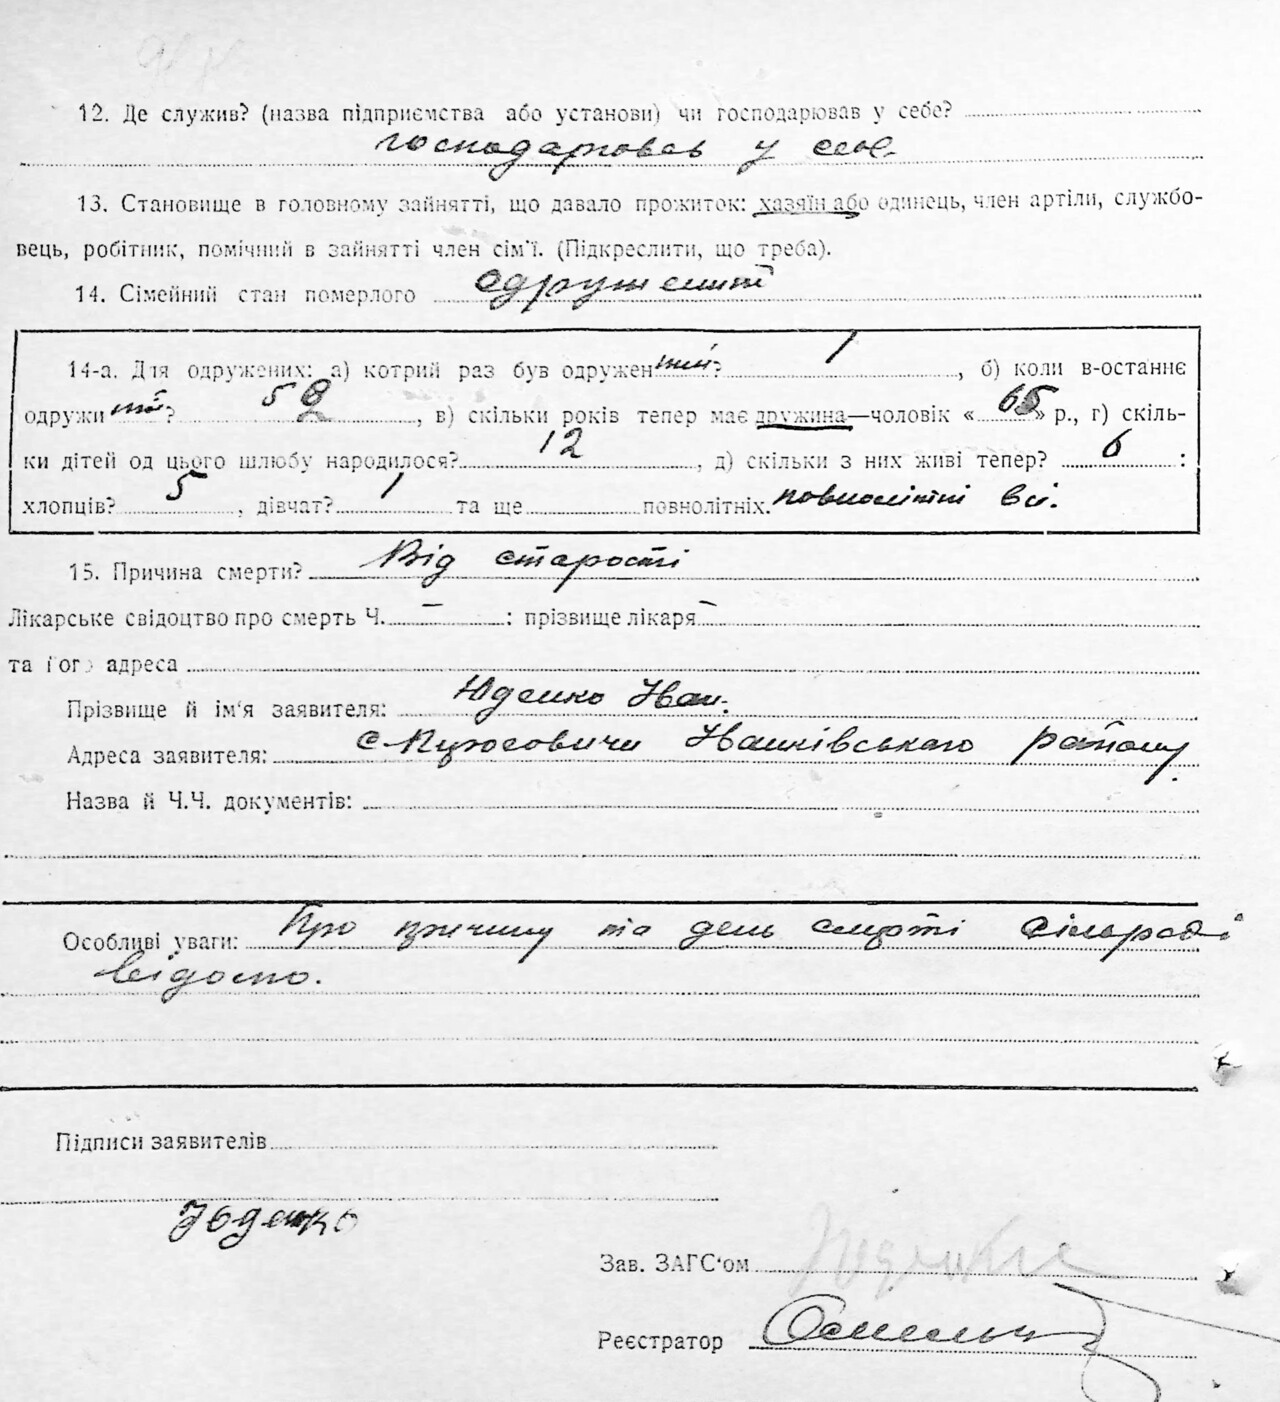 12. Де служив? (назва підприємства або установи) чи господарював у себе?
господарював у себе
13. Становище в головному зайнятті, що давало прожиток: хазяїн або одинець, член артіли, службо-
вець, робітник, помічний в зайнятті член сім'ї. (Підкреслити, що треба).
14. Сімейний стан померлого одружений
14-а. Для одружених: а) котрий раз був одружений? 1, б) коли в-останнє
одружи ? 5, в) скільки років тепер має дружина—чоловік «65» р., г) скіль-
ки дітей од цього шлюбу народилося? 12, д) скільки з них живі тепер? 6:
хлопців? 5, дівчат? 1 та ще повнолітніх. повнолітні всі.
15. Причина смерти? Від старості
Лікарське свідоцтво про смерть Ч. – : прізвище лікаря –
та його адреса
Прізвище й ім'я заявителя: Юденко Іван.
Адреса заявителя: с. Іванківського району.
Назва й Ч.Ч. документів:
Особливі уваги: Про причину та день смерті сільраді
відомо.
Підписи заявителів
Юденко
Зав. ЗАГС'ом
Реєстратор